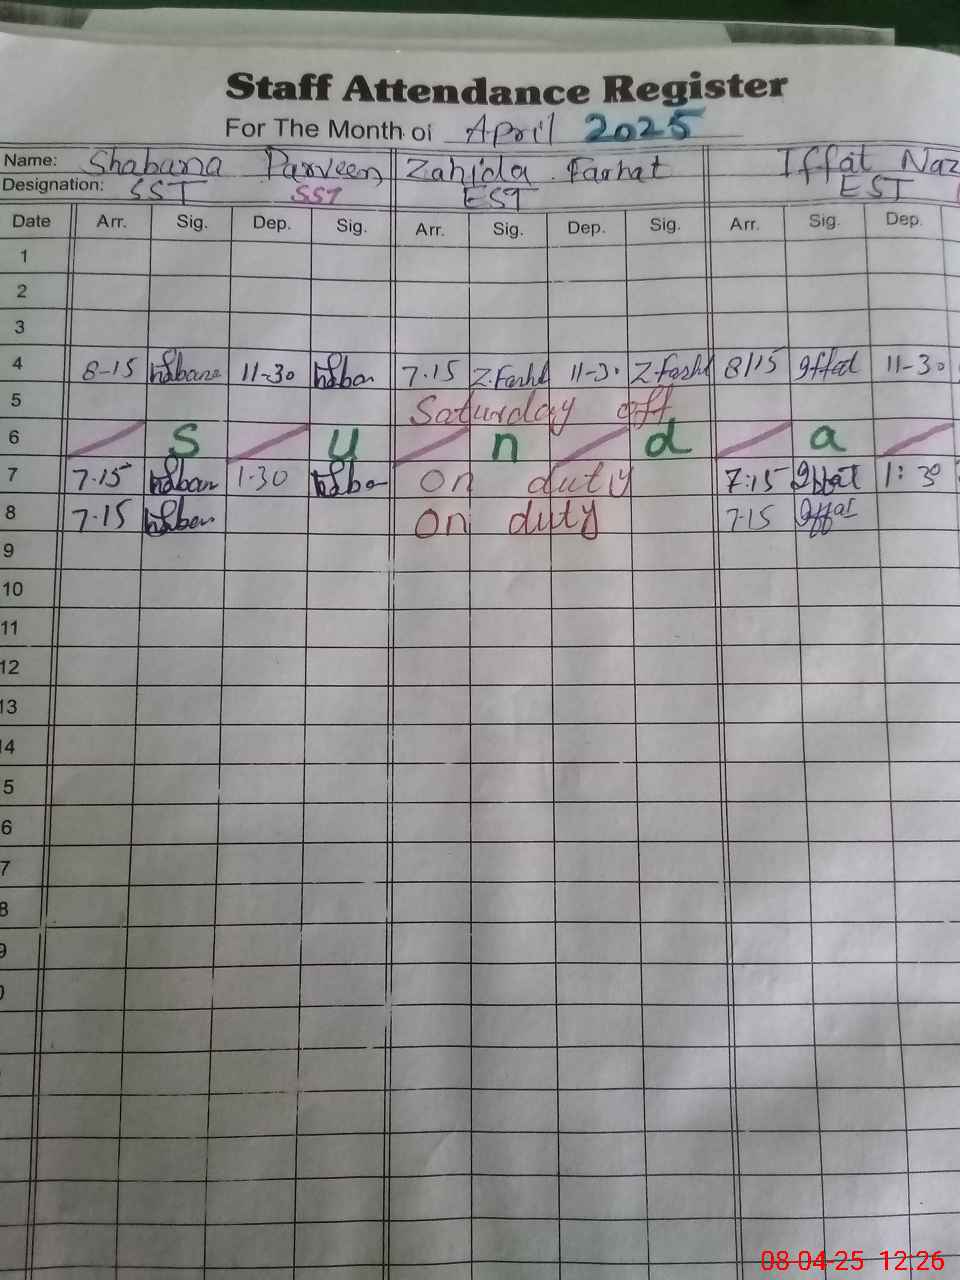 Staff Attendance Register
For The Month of April 2025
Name: Shabana Parveen Zahida Farhat Iffat Naz
Designation: SST SST EST EST
Date Arr. Sig. Dep. Sig. Arr. Sig. Dep. Sig. Arr. Sig. Dep.
1
2
3
4 8-15 11-30 7.15 Z.Farht 11-30 Z.Farht 8/15 Iffat 11-30
5 Saturday off
6 S u n d a
7 7.15 1.30 On duty 7:15 Iffat 1:30
8 7.15 On duty 7.15 Iffat
9
10
11
12
13
14
5
6
7
8
9
0
08-04-25 12:26